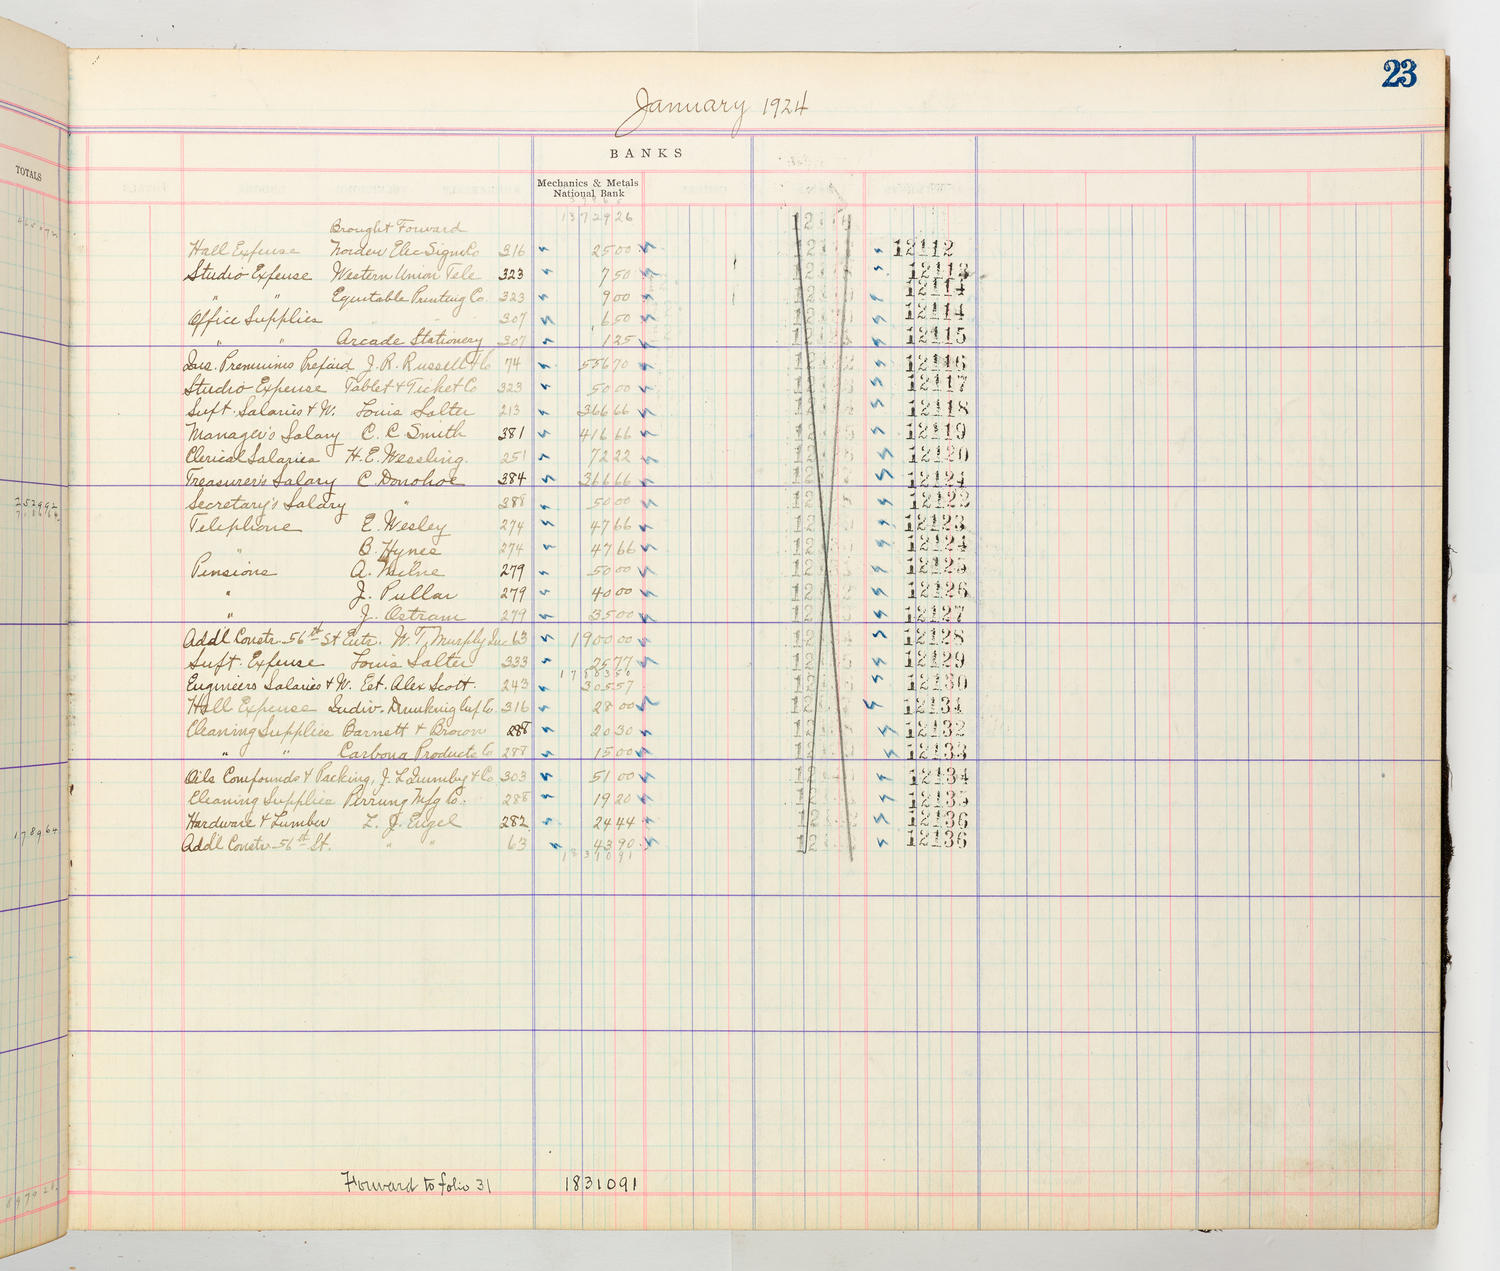 23
January 1924
TOTALS
BANKS
Mechanics & Metals National Bank
Brought Forward 1372926
Hall Expense Norden Elec Sign Co 316 2500 12112
Studio Expense Western Union Tele 323 750 12113
" " Equitable Printing Co. 323 900 12114
Office Supplies " " 307 650 12114
" " Arcade Stationery 307 125 12115
Ins. Premiums Prepaid J. R. Russell & Co 74 55670 12116
Studio Expense Tablet & Ticket Co 323 5000 12117
Supt. Salaries & W. Louis Salter 213 36666 12118
Manager's Salary C. C. Smith 381 41666 12119
Clerical Salaries H. E. Wessling. 251 7222 12120
Treasurer's Salary C. Donohoe 384 36666 12121
Secretary's Salary " 388 5000 12122
Telephone E. Wesley 274 4766 12123
" B. Hynes 274 4766 12124
Pensions A. Milne 279 5000 12125
" J. Pullar 279 4000 12126
" J. Ostram 279 3500 12127
Addl Constr. 56th St Entr. W. T. Murphy Inc 63 190000 12128
Supt. Expense Louis Salter 333 2577 12129
1788350
Engineers Salaries & W. Est. Alex Scott. 243 30557 12130
Hall Expense Indiv. Drinking Cup Co. 316 2800 12131
Cleaning Supplies Barnett & Brown 288 2030 12132
" " Carbona Products Co 288 1500 12133
Oils Compounds & Packing, J. L. Quimby & Co. 303 5100 12134
Cleaning Supplies Perrung Mfg Co. 288 1920 12135
Hardware & Lumber L. J. Engel 282 2444 12136
Addl Constr. 56th St. " " 63 4390 12136
1831091
Forward to folio 31 1831091